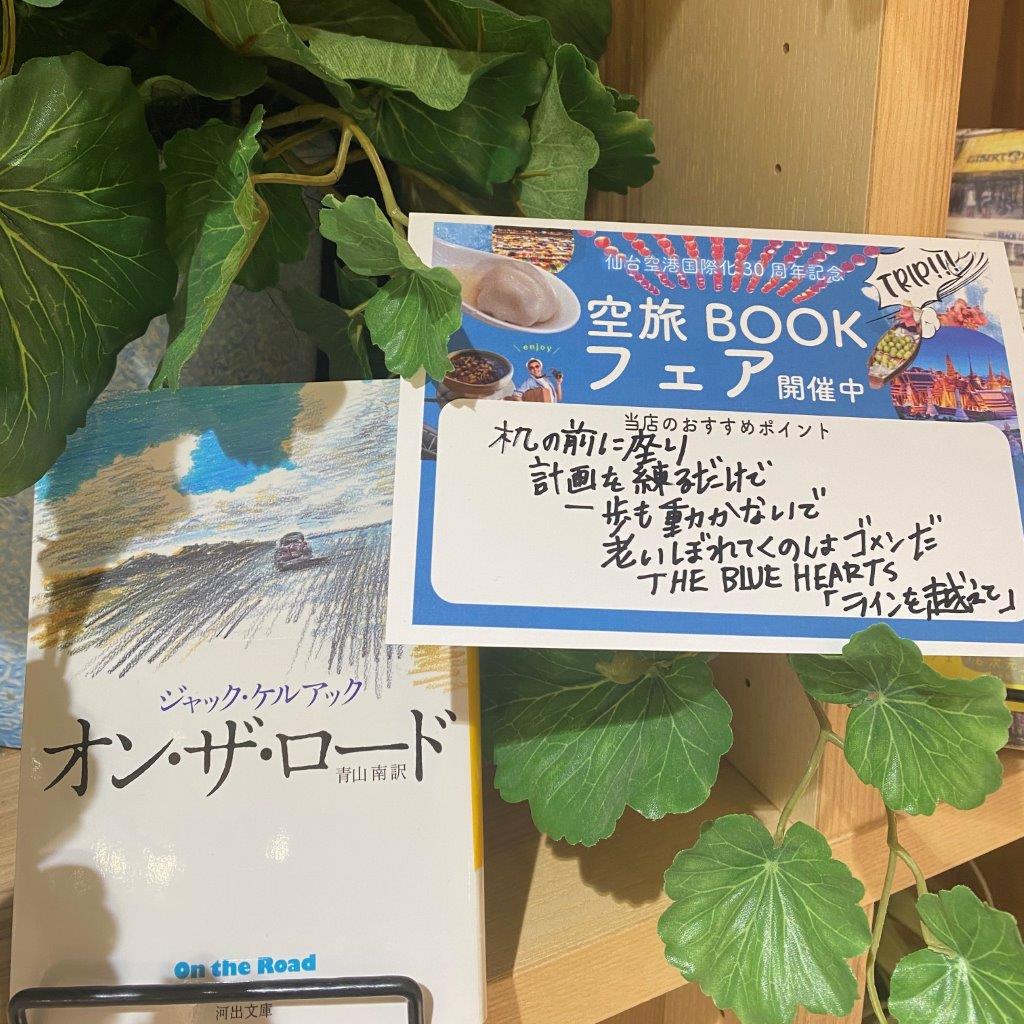 仙台空港国際化30周年記念
TRIP!!!
空旅 BOOK
フェア 開催中
enjoy
当店のおすすめポイント
机の前に座り
計画を練るだけで
一歩も動かないで
老いぼれてくのはゴメンだ
THE BLUE HEARTS
「ラインを越えて」
ジャック・ケルアック
オン・ザ・ロード
青山南訳
On the Road
河出文庫